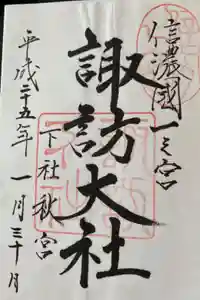 信濃國一之宮
諏訪大社
下社秋宮
平成二十五年一月三十日